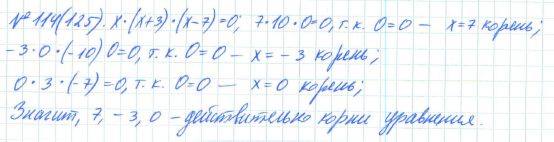 № 114(125). x·(x+3)·(x-7)=0; 7·10·0=0, т.к. 0=0 — x=7 корень;
-3·0·(-10) 0=0, т.к. 0=0 — x=-3 корень;
0·3·(-7)=0, т.к. 0=0 — x=0 корень;
Значит, 7, -3, 0 - действительно корни уравнения.